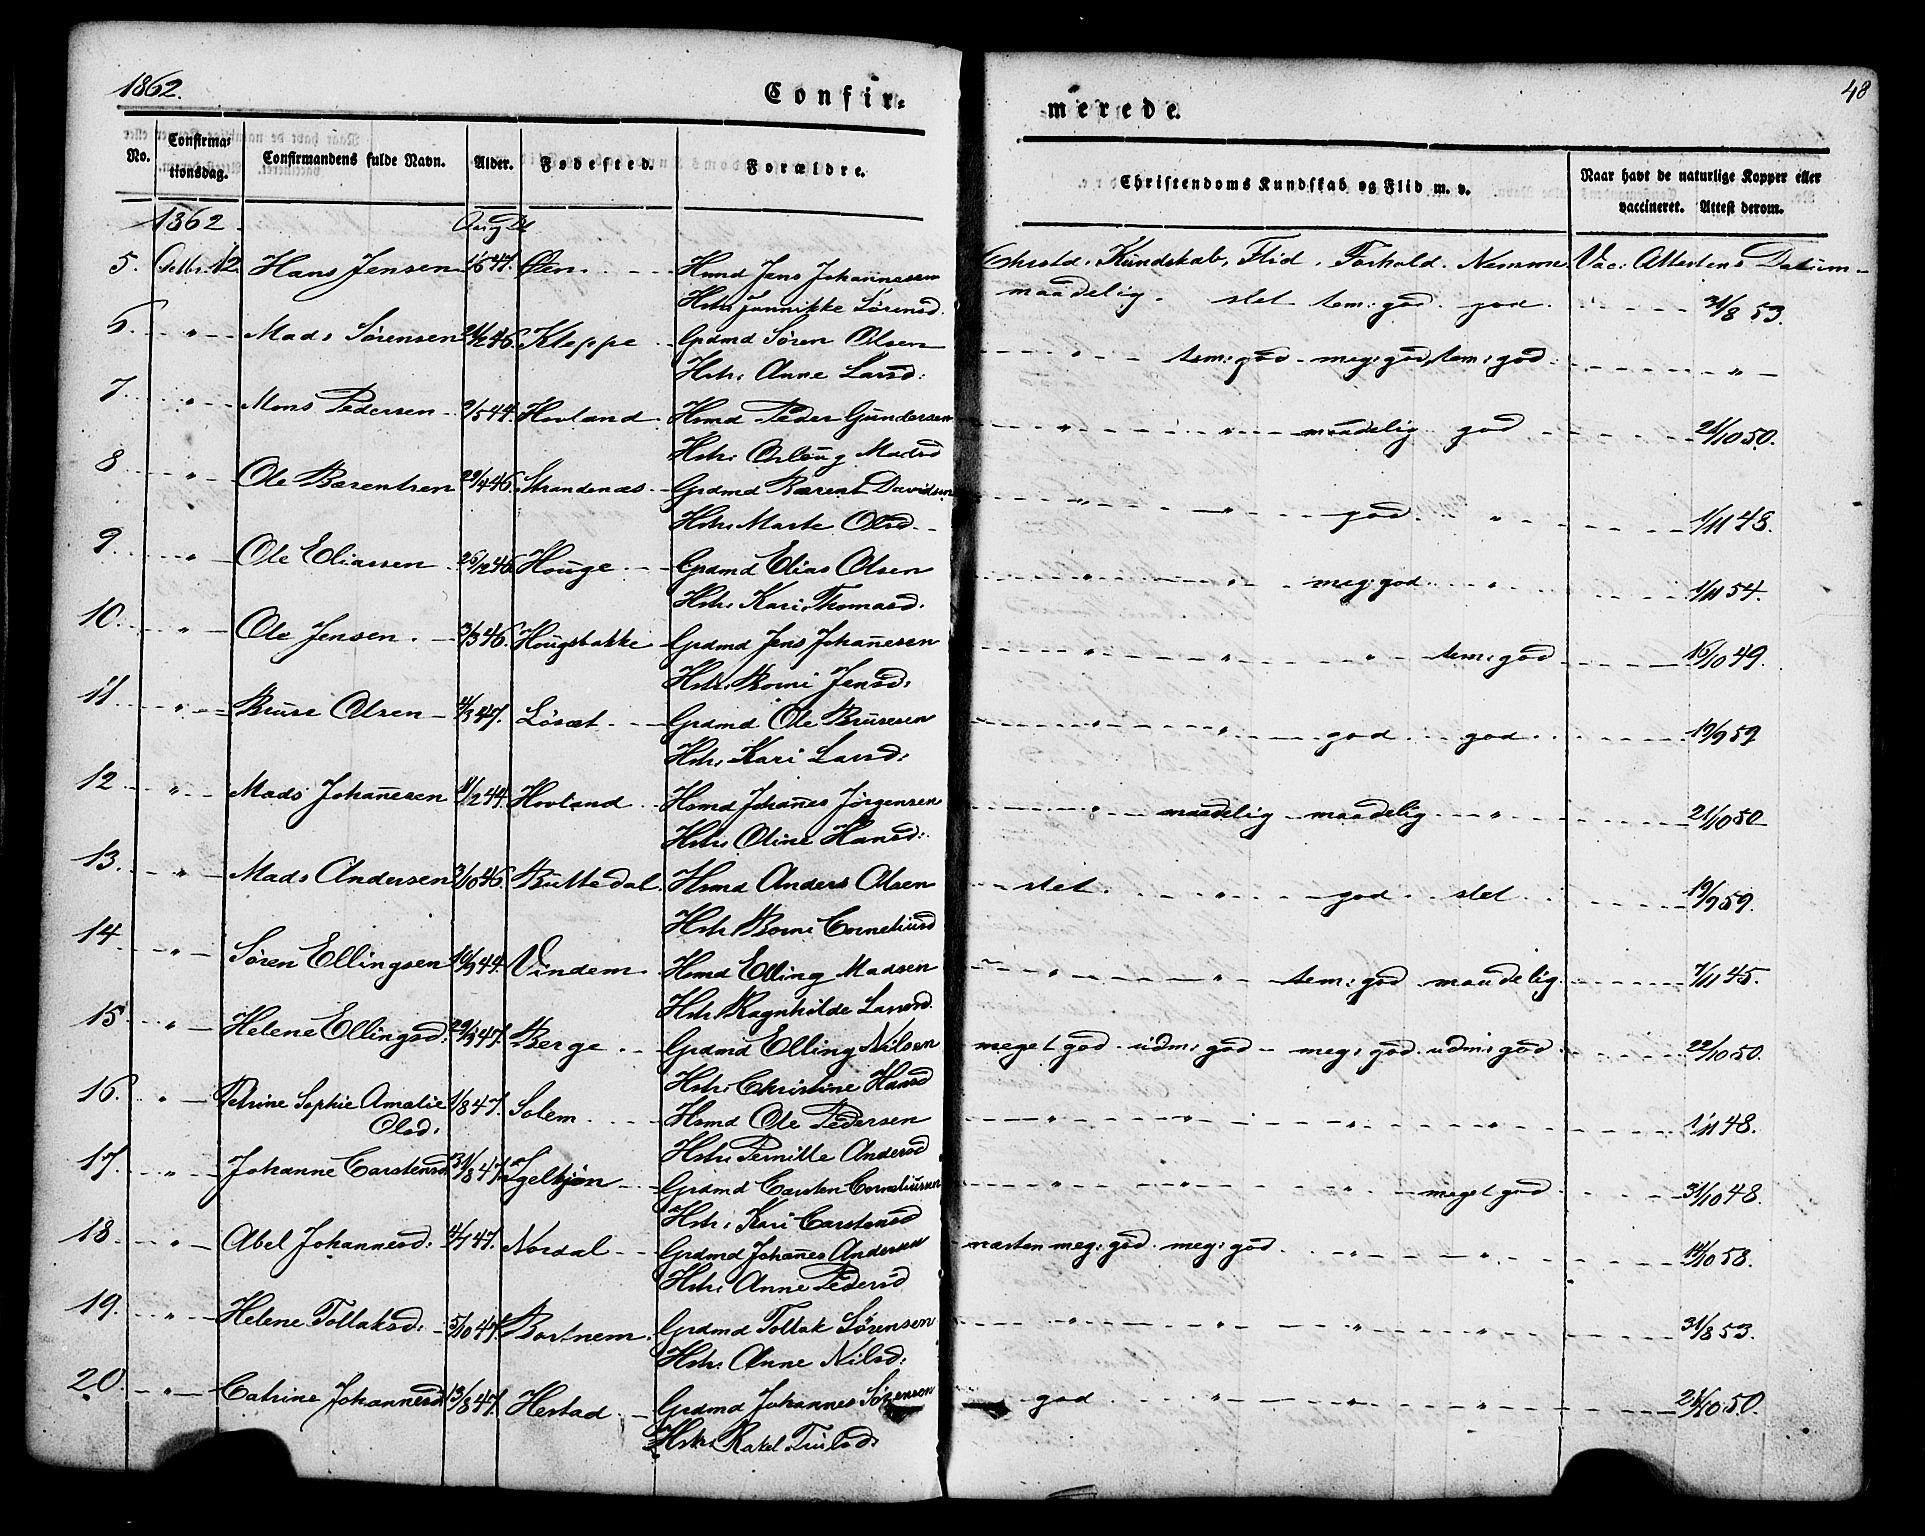 1862.
Confir-
merede.
48
No.
Confirma-
tionsdag.
Confirmandens fulde Navn.
Alder.
Fødested.
Forældre.
Christendoms Kundskab og Flid m. v.
Naar havt de naturlige Kopper eller
vaccineret. Attest derom.
1862.
5. Octbr. 12 Hans Jensen Øen Hmd Jens Johannesen Christd. Kundskab, Flid. Forhold. Nemme Vac: Attestens Datum
Hstr. Jannikke Sørensd. maadelig. slet tem: god god 31/8 53.
6. " Mads Sørensen Kleppe Grdmd Søren Olsen
Hstr. Anne Larsd: " tem: god meg: god, tem: god "
7. " Mons Pedersen 9/5 44. Hovland Hsmd Peder Gundersen
Hstr. Madsd " " maadelig god 21/10 50.
8 " Ole Bærentsen 29/4 46. Strandenæs Grdmd Bærent Davidsen
Hstr. Marte Olsd. " " god. " 1/11 48.
9. " Ole Eliassen 26/2 46. Houge Grdmd Elias Olsen
Hstr. Kari Thomasd. " " meg: god " 1/11 54.
10. " Ole Jensen. 3/3 46. Hougsbakke Grdmd Jens Johanesen
Hstr. Borni Jensd: " " " tem: god 16/10 49.
11. " Bruse Olsen 4/3 47. Løsæt Grdmd Ole Brusesen
Hstr. Kari Larsd: " " god god 19/9 59
12 " Mads Johanesen 11/2 44. Hovland Hsmd Johanes Jörgensen
Hstr. Oline Hansd: " maadelig maadelig " 21/10 50
13. " Mads Andersen 3/10 46. Buttedal. Hsmd Anders Olsen
Hstr. Borni Corneliusd slet. " god. slet 19/9 59.
14 " Søren Ellingsen 16/9 44. Vindem Hsmd Elling Madsen
Hstr. Ragnhilde Larsd. " " tem: god maadelig 7/11 45.
15 " Helene Ellingsd: 29/9 47. Berge Grdmd Elling Nilsen
Hstr. Christine Hansd meget god udm: god meg: god. udm: god 22/10 50.
16. " Petrine Sophie Amalie 1/8 47. Solem Hsmd Ole Pedersen
Olsd: Hstr. Pernille Andersd " " " " 1/11 48.
17. " Johanne Carstensd 31/8 47. Grdmd Carsten Corneliussen
Hstr. Kari Carstensd " " " meget god 31/10 48.
18. " Abel Johannesd: 4/7 47. Nordal Grdmd Johanes Andersen
Hstr. Anne Pedersd næsten meg: god. meg: god " " 14/10 58.
19. " Helene Tollaksd: 5/10 47. Bortnem Grdmd Tollak Sörensen
Hstr. Anne Nilsd: " " " " 31/8 53.
20. " Catrine Johannesd 13/8 47. Hestad Grdmd Johannes Sörensen
Hstr. Rakel god " " " 21/10 50.